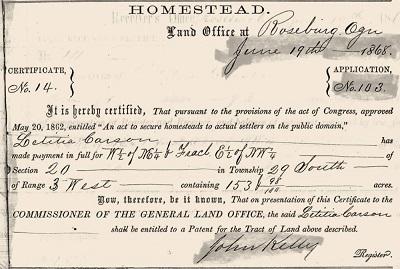 HOMESTEAD.
Land Office at Roseburg Ogn
June 19th 1868.
CERTIFICATE, No. 14.
APPLICATION, No. 103
It is hereby certified, That pursuant to the provisions of the act of Congress, approved
May 20, 1862, entitled "An act to secure homesteads to actual settlers on the public domain,"
Letitia Carson has
made payment in full for W½ of NE¼ & Fract E½ of NW¼ of
Section 20 in Township 29 South
of Range 3 West containing 153 98/100 acres.
Now, therefore, be it known, That on presentation of this Certificate to the
COMMISSIONER OF THE GENERAL LAND OFFICE, the said Letitia Carson
shall be entitled to a Patent for the Tract of Land above described.
John Kelly
Register.